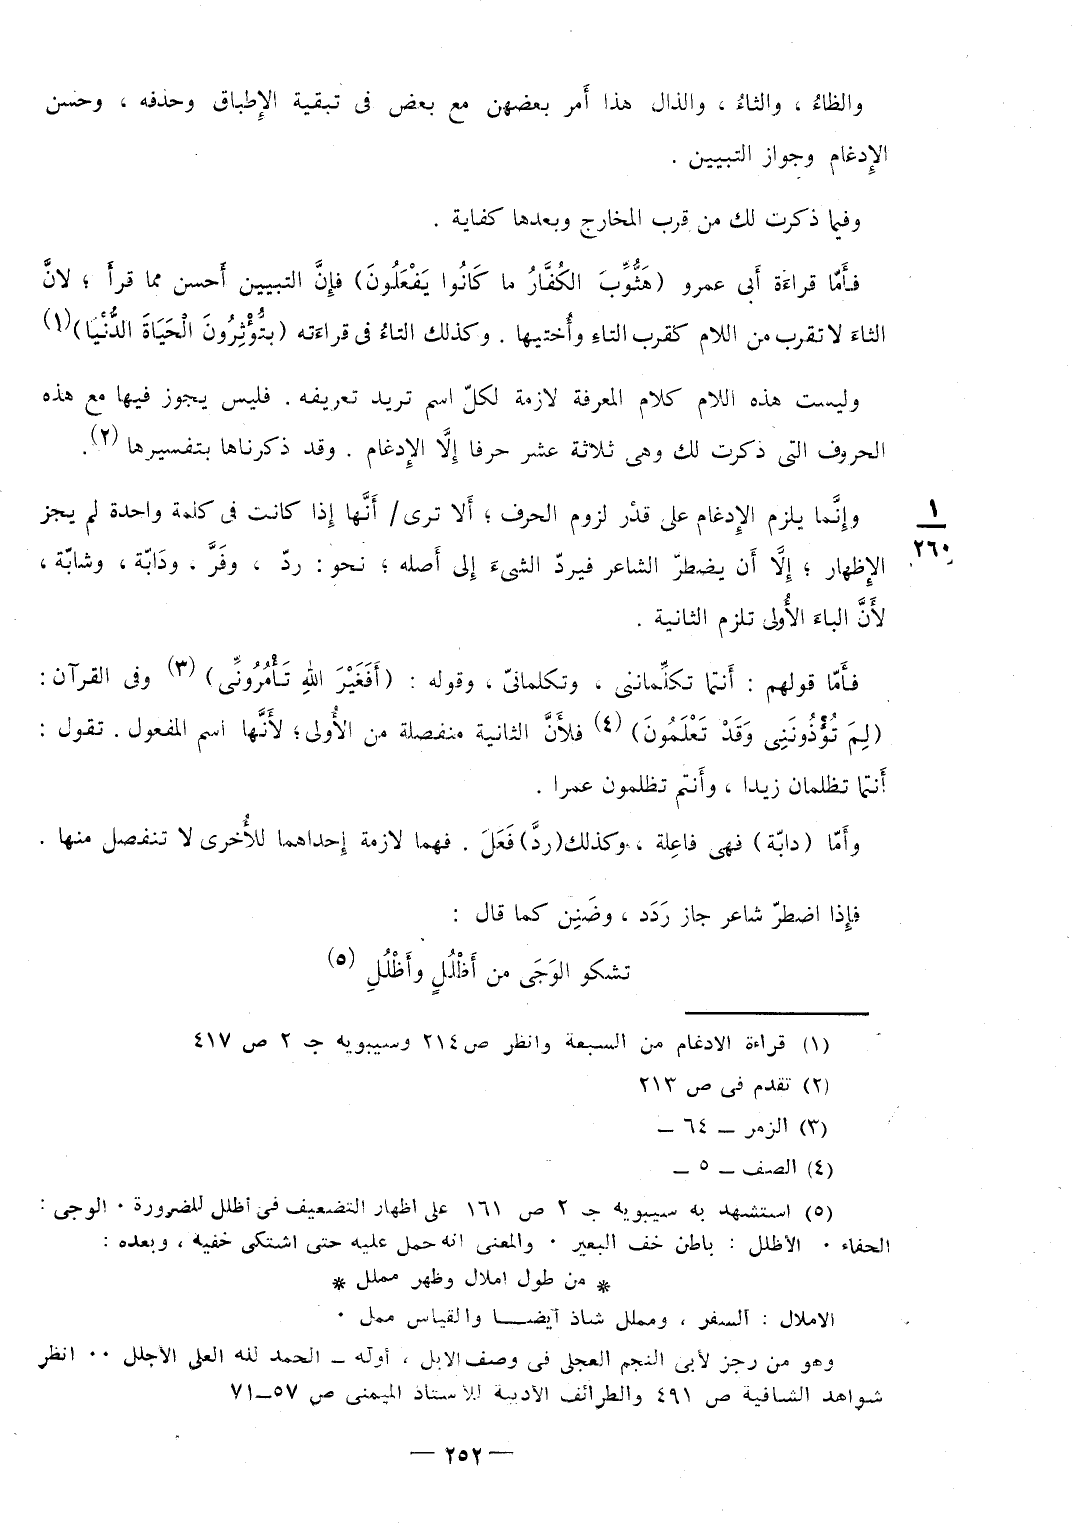 والظاءُ ، والثاءُ ، والذال هذا أَمر بعضهن مع بعض فى تبقية الإِطباق وحذفه ، وحسن
الإِدغام وجواز التبيين .
وفيما ذكرت لك من قرب المخارج وبعدها كفاية .
فأَمّا قراءَة أَبى عمرو (هَثُّوِّبَ الكُفَّارُ ما كَانُوا يَفْعَلُونَ) فإِنَّ التبيين أَحسن مما قرأَ ؛ لانَّ
الثاءَ لا تقرب من اللام كقرب التاءِ وأُختيها . وكذلك التاءُ فى قراءَته (بتُّؤْثِرُونَ الْحَيَاةَ الدُّنْيَا)(١)
وليست هذه اللام كلام المعرفة لازمة لكلّ اسم تريد تعريفه . فليس يجوز فيها مع هذه
الحروف التى ذكرت لك وهى ثلاثة عشر حرفا إِلَّا الإِدغام . وقد ذكرناها بتفسيرها (٢).
وإِنَّما يلزم الإِدغام على قدْر لزوم الحرف ؛ أَلا ترى/ أَنَّها إِذا كانت فى كلمة واحدة لم يجز
١
٢٦٠
الإِظهار ؛ إِلَّا أَن يضطرّ الشاعر فيردّ الشىءَ إِلى أَصله ؛ نحو : ردّ ، وفَرَّ . ودَابّة ، وشابّة ،
لأَنَّ الباءَ الأُولى تلزم الثانية .
فأَمّا قولهم : أَنتما تكلِّماننى ، وتكلمانىّ ، وقوله : (أَفَغَيْرَ اللهِ تَأْمُرُونِّى) (٣) وفى القرآن :
(لِمَ تُؤْذُونَنِى وَقَدْ تَعْلَمُونَ) (٤) فلأَنَّ الثانية منفصلة من الأُولى؛ لأَنَّها اسم المفعول . تقول :
أَنتما تظلمان زيدا ، وأَنتم تظلمون عمرا .
وأَمّا (دابّة) فهى فاعِلة ، وكذلك(ردَّ) فَعَلَ . فهما لازمة إِحداهما للأُخرى لا تنفصل منها .
فإِذا اضطرّ شاعر جاز رَدَد ، وضَنِن كما قال :
تشكو الوَجَى من أَظْلَلٍ وأَظْلَلِ (٥)
(١) قراءة الادغام من السبعة وانظر ص٢١٤ وسيبويه جـ ٢ ص ٤١٧
(٢) تقدم فى ص ٢١٣
(٣) الزمر – ٦٤ –
(٤) الصف – ٥ –
(٥) استشهد به سيبويه جـ ٢ ص ١٦١ على اظهار التضعيف فى أظلل للضرورة ٠ الوجى :
الحفاء ٠ الأظلل : باطن خف البعير ٠ والمعنى انه حمل عليه حتى اشتكى خفيه ، وبعده :
* من طول املال وظهر مملل *
الاملال : السفر ، ومملل شاذ أيضـــا والقياس ممل ٠
وهو من رجز لأبى النجم العجلى فى وصف الابل ، أوله – الحمد لله العلى الأجلل ٠٠ انظر
شواهد الشافية ص ٤٩١ والطرائف الأدبية للأستاذ الميمنى ص ٥٧–٧١
— ٢٥٢ —